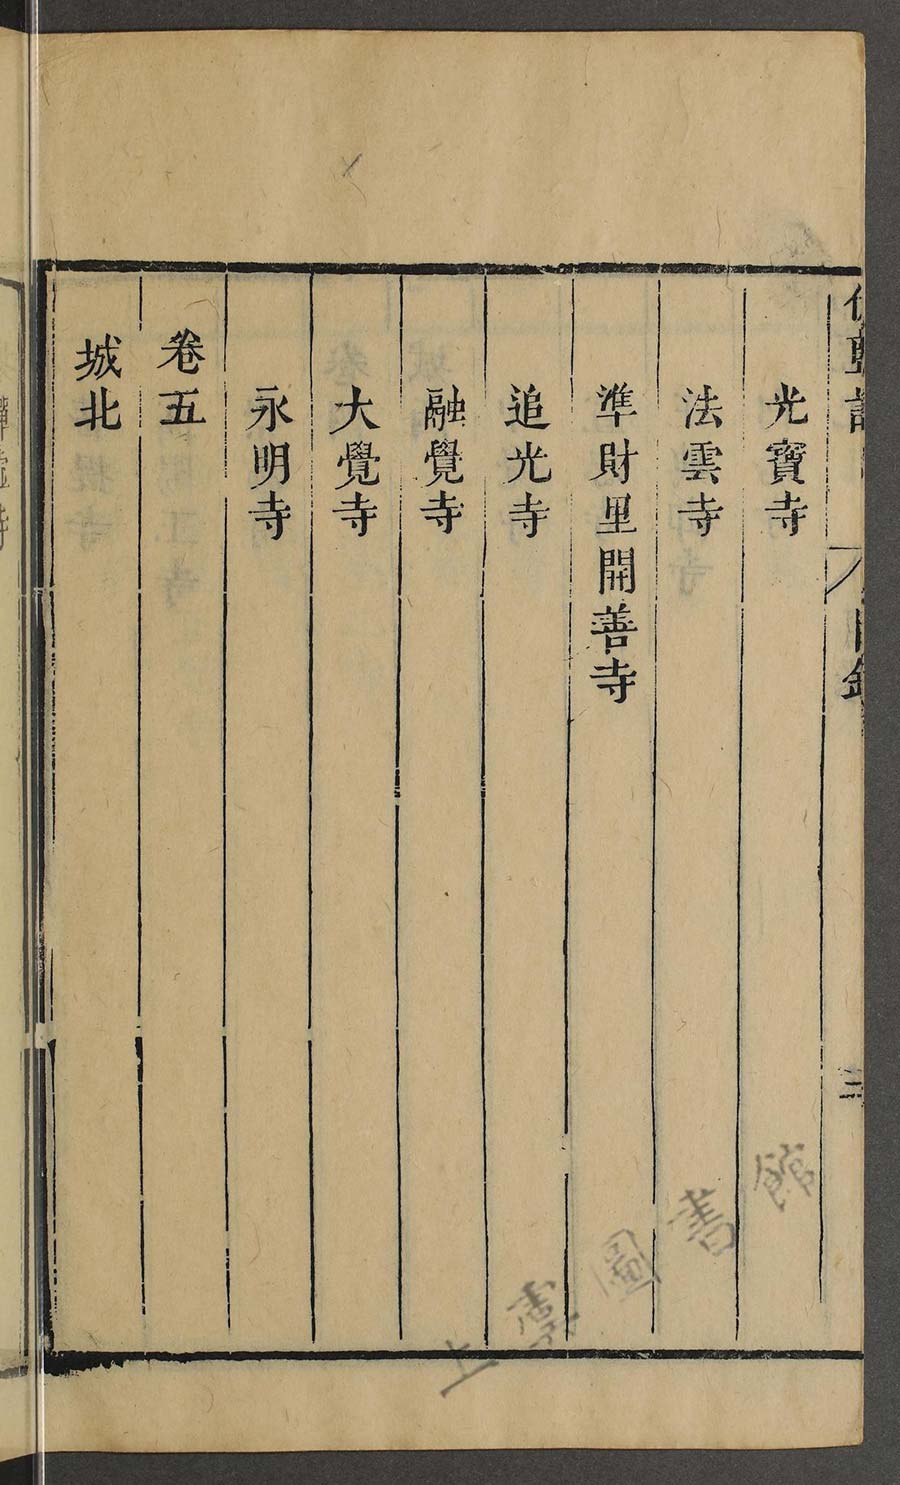 伽藍記
目錄
三
光寶寺
法雲寺
準財里開善寺
追光寺
融覺寺
大覺寺
永明寺
卷五
城北
上虞圖書館